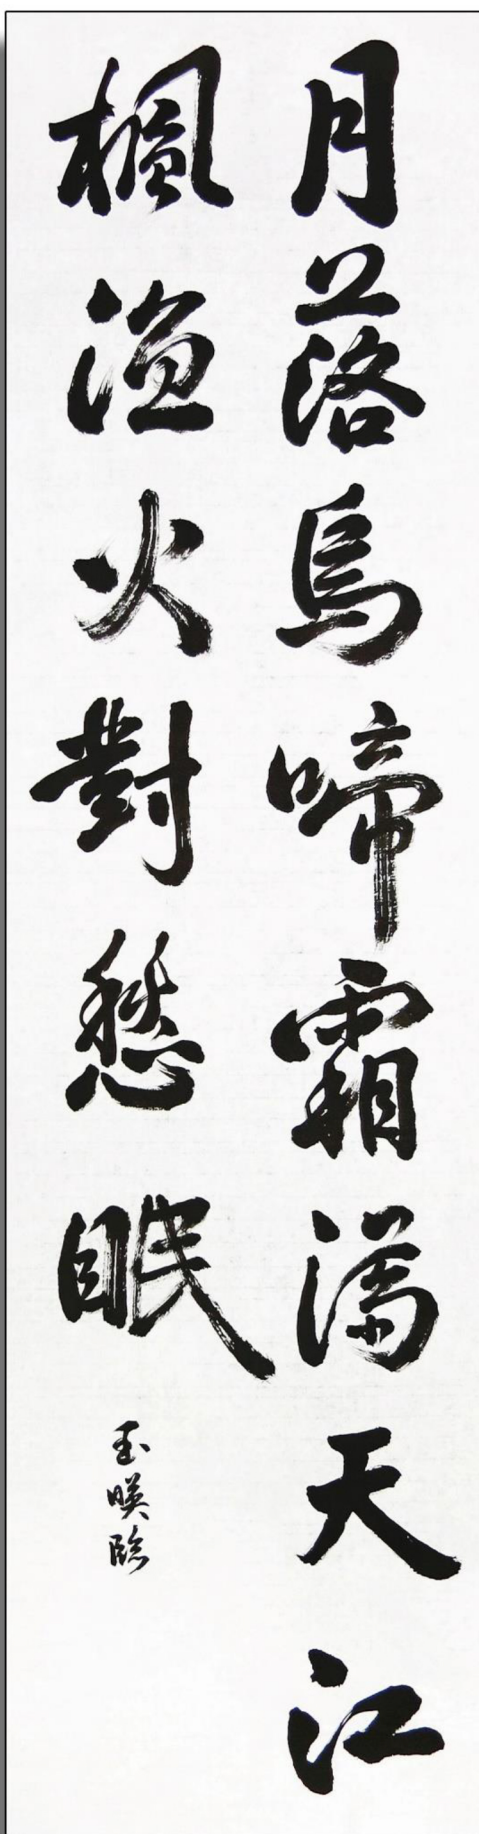 月落烏啼霜滿天江
楓漁火對愁眠
玉暎臨